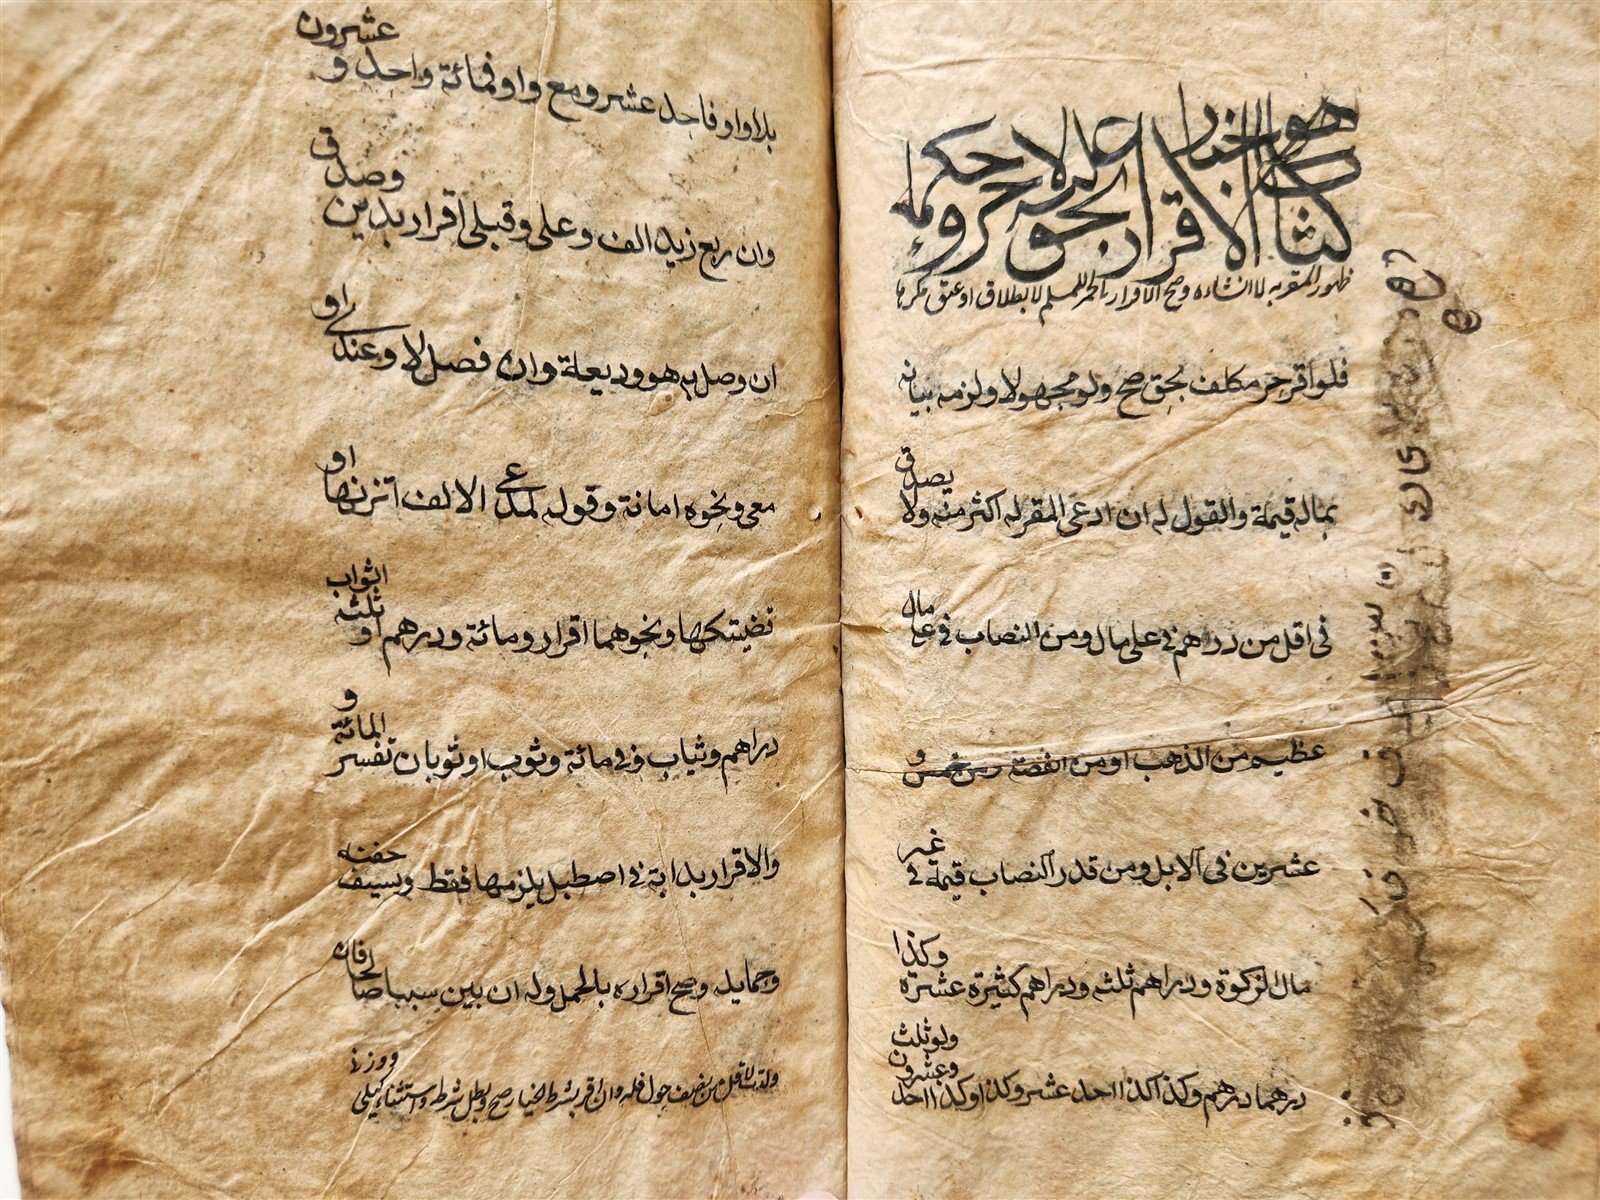 كتاب الاقرار
هو اخبار بحق لآخر عليه وحكمه
ظهور المقر به لا انشاءه وصح الاقرار بالخمر للمسلم لا بطلاق او عتق مكرها
فلو اقر حر مكلف بحق صح ولو مجهولا ولزمه بيانه
بماله قيمة والقول له ان ادعى المقر له اكثر منه ولا يصدق
فى اقل من درهم فى على مال ومن النصاب فى على مال
عظيم من الذهب او من الفضة ومن خمس و
عشرين فى الابل ومن قدر النصاب قيمة فى غير
مال الزكوة ودراهم ثلثه ودراهم كثيرة عشرة وكذا
درهما درهم وكذا كذا احد عشر وكذا وكذا احد وعشرون ولو ثلث
بلا واو فاحد عشر ومع واو فمائة واحد و عشرون
وان ربع زيد الف وعلى وقبلى اقرار بدين وصدق
ان وصل به هو وديعة وان فصل لا وعندى او
معى ونحوه امانة وقوله لمدعى الالف اتزنها او
قضيتكها ونحوهما اقرار ومائة ودرهم او ثلثه اثواب
دراهم وثياب وفى مائة وثوب او ثوبان تفسر المائة و
والاقرار بدابة فى اصطبل يلزمها فقط وبسيف جفنه
وحمايله وصح اقراره بالحمل وله ان بين سببا صالحا فان
ولدت لاقل من نصف حول فله وان اقر بشرط الخيار صح وبطل شرطه واستثناء كيلى ووزنى